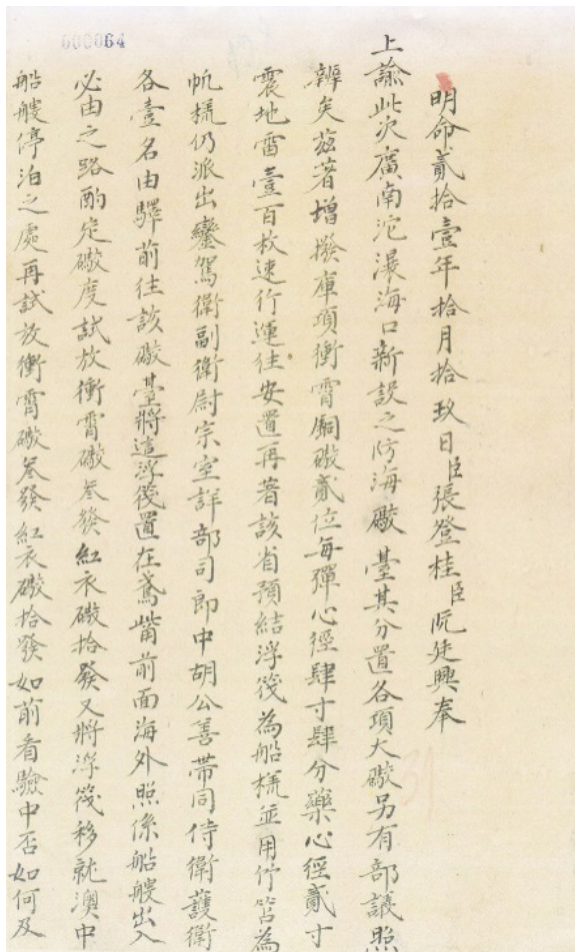 000064
明命貳拾壹年拾月拾玖日臣張登桂臣阮廷興奉
上諭此次廣南沱㶞海口新設之防海礮臺其分置各項大礮另有部議照
辦矣茲著增撥庫項衝霄銅礮貳位每彈心徑肆寸肆分藥心徑貳寸
震地雷壹百枚速行運往安置再著該省預結浮筏為船樣並用竹筥為
帆樣仍派出鑾駕衛副衛尉宗室詳部司郎中胡公善帶同侍衛護衛
各壹名由驛前往該礮臺將這浮筏置在鳶觜前面海外照係船艘出入
必由之路酌定礮度試放衝霄礮叁發紅衣礮拾發又將浮筏移就澳中
船艘停泊之處再試放衝霄礮叁發紅衣礮拾發如前看驗中否如何及